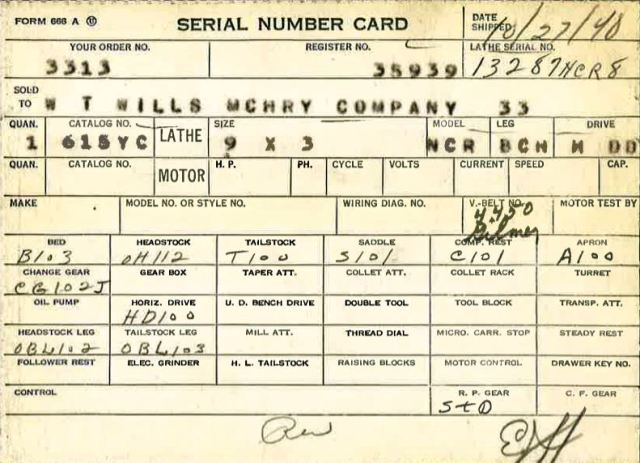 FORM 666 A SERIAL NUMBER CARD DATE SHIPPED 10/27/40
YOUR ORDER NO. REGISTER NO. LATHE SERIAL NO.
3313 35939 13287 NCR8
SOLD TO W T WILLS MCHRY COMPANY 33
QUAN. CATALOG NO. LATHE SIZE MODEL LEG DRIVE
1 615YC 9 X 3 NCR BCH H DD
QUAN. CATALOG NO. MOTOR H. P. PH. CYCLE VOLTS CURRENT SPEED CAP.
MAKE MODEL NO. OR STYLE NO. WIRING DIAG. NO. V.-BELT NO. MOTOR TEST BY
4450
Gilmer
BED HEADSTOCK TAILSTOCK SADDLE COMP. REST APRON
B103 OH112 T100 S101 C101 A100
CHANGE GEAR GEAR BOX TAPER ATT. COLLET ATT. COLLET RACK TURRET
CG102J
OIL PUMP HORIZ. DRIVE U. D. BENCH DRIVE DOUBLE TOOL TOOL BLOCK TRANSP. ATT.
HD100
HEADSTOCK LEG TAILSTOCK LEG MILL ATT. THREAD DIAL MICRO. CARR. STOP STEADY REST
OBL102 OBL103
FOLLOWER REST ELEC. GRINDER H. L. TAILSTOCK RAISING BLOCKS MOTOR CONTROL DRAWER KEY NO.
CONTROL R. P. GEAR C. F. GEAR
StD